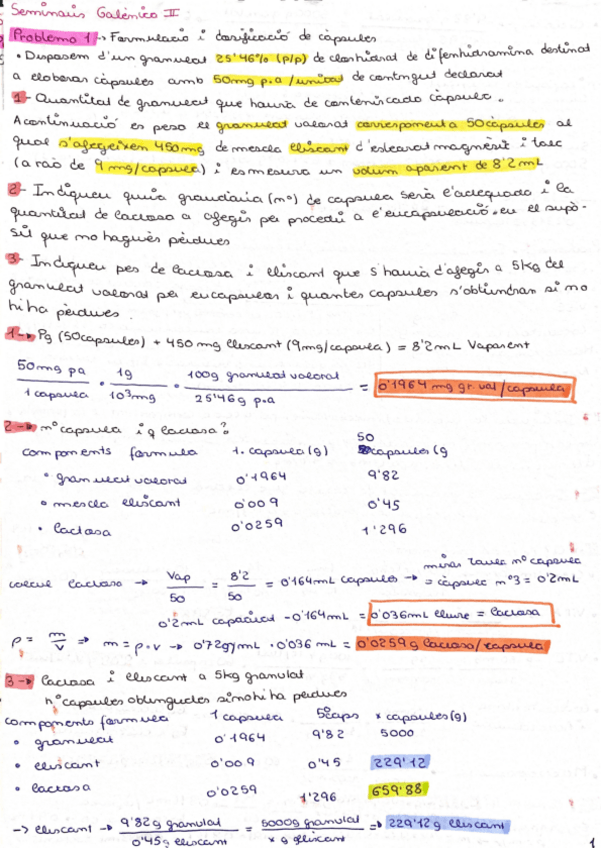 Seminaris Galènica II
Problema 1 -> Formulació i dosificació de càpsules
• Disposem d'un granulat 25'46% (p/p) de clorhidrat de difenhidramina destinat
a elaborar càpsules amb 50mg p.a /unitat de contingut declarat
1- Quantitat de granulat que hauria de contenir cada càpsula.
A continuació es pesa el granulat valorat corresponent a 50 càpsules al
qual s'afegeixen 450 mg de mescla lliscant d'estearat magnèsic i talc
(a raó de 9 mg/capsula) i es mesura un volum aparent de 8'2 mL
2- Indiqueu quina grandària (nº) de capsula serà l'adequada i la
quantitat de lactosa a afegir per procedir a l'encapsulació en el supò-
sit que no hagués pèrdues
3- Indiqueu pes de lactosa i lliscant que s'hauria d'afegir a 5kg del
granulat valorat per encapsular i quantes capsules s'obtindran si no
hi ha pèrdues.
1-> Pg (50capsules) + 450 mg lliscant (9mg/capsula) = 8'2 mL Vaparent
50 mg pa / 1 capsula · 1g / 10³mg · 100g granulat valorat / 25'46 g p.a = 0'1964 mg gr. val / capsula
2-> nº capsula i g lactosa?
components formula 1. capsula (g) 50 capsules (g
• granulat valorat 0'1964 9'82
• mescla lliscant 0'009 0'45
• lactosa 0'0259 1'296
calcul lactosa -> Vap / 50 = 8'2 / 50 = 0'164 mL capsules -> miras taula nº capsula = càpsula nº3 = 0'2mL
0'2mL capacitat - 0'164 mL = 0'036mL lliure = lactosa
ρ = m/v => m = ρ·v -> 0'72g/mL · 0'036 mL = 0'0259 g lactosa/capsula
3-> lactosa i lliscant a 5kg granulat
nº capsules obtingudes si no hi ha pèrdues
components formula 1 capsula 50caps x capsules (g)
• granulat 0'1964 9'82 5000
• lliscant 0'009 0'45 229'12
• lactosa 0'0259 1'296 659'88
-> lliscant -> 9'82 g granulat / 0'45g lliscant = 5000g granulat / x g lliscant => 229'12g lliscant
1